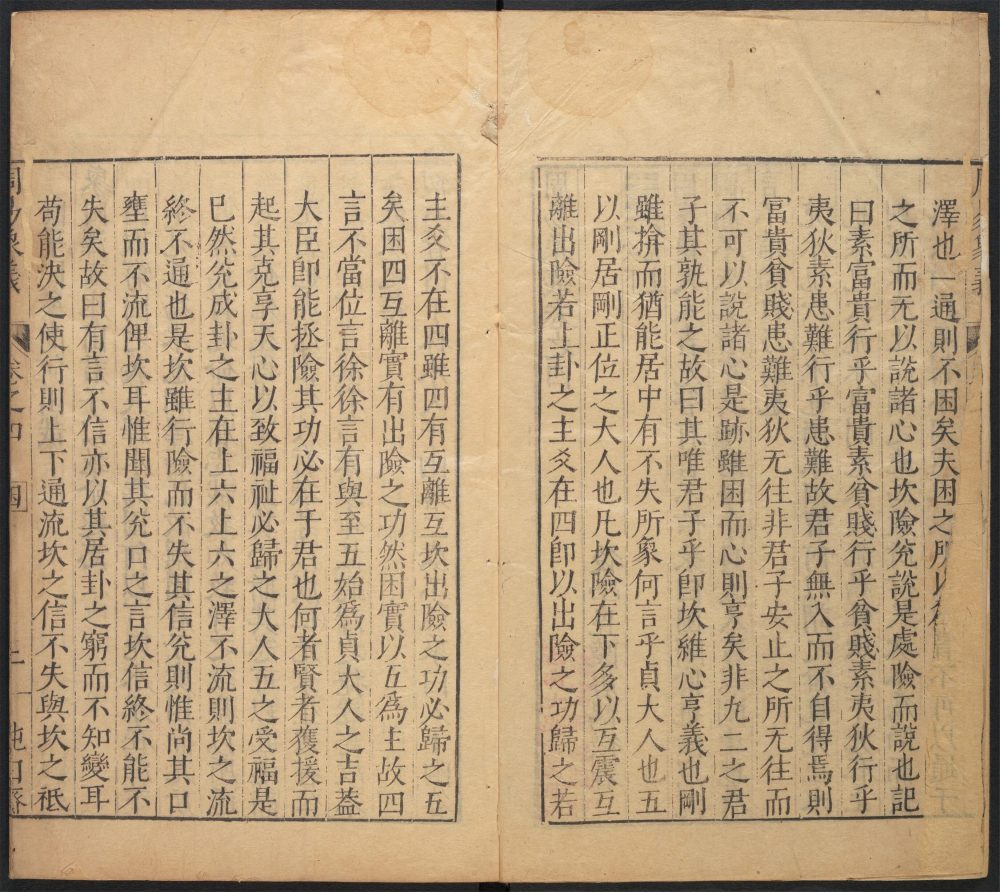 澤也一通則不困矣夫困之所以
之所而无以說諸心也坎險兊說是處險而說也記
曰素富貴行乎富貴素貧賤行乎貧賤素夷狄行乎
夷狄素患難行乎患難故君子無入而不自得焉則
富貴貧賤患難夷狄无往非君子安止之所无往而
不可以說諸心是跡雖困而心則亨矣非九二之君
子其孰能之故曰其唯君子乎卽坎維心亨義也剛
雖揜而猶能居中有不失所象何言乎貞大人也五
以剛居剛正位之大人也凡坎險在下多以互震互
離出險若上卦之主爻在四卽以出險之功歸之若
主爻不在四雖四有互離互坎出險之功必歸之五
矣困四互離實有出險之功然困實以五爲主故四
言不當位言徐徐言有與至五始爲貞大人之吉葢
大臣卽能拯險其功必在于君也何者賢者獲援而
起其克享天心以致福祉必歸之大人五之受福是
已然兊成卦之主在上六上六之澤不流則坎之流
終不通也是坎雖行險而不失其信兊則惟尚其口
壅而不流俾坎耳惟聞其兊口之言坎信終不能不
失矣故曰有言不信亦以其居卦之窮而不知變耳
苟能決之使行則上下通流坎之信不失與坎之祗
周易象義 卷之四 困 上